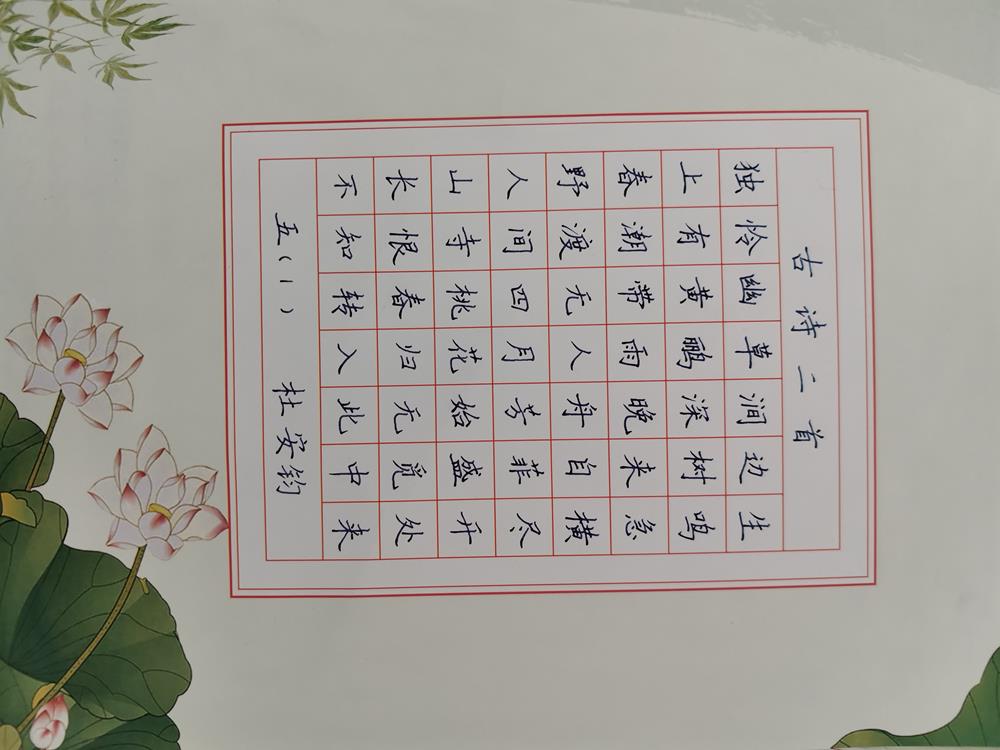 古诗二首
独怜幽草涧边生
上有黄鹂深树鸣
春潮带雨晚来急
野渡无人舟自横
人间四月芳菲尽
山寺桃花始盛开
长恨春归无觅处
不知转入此中来
五(1) 杜安钧